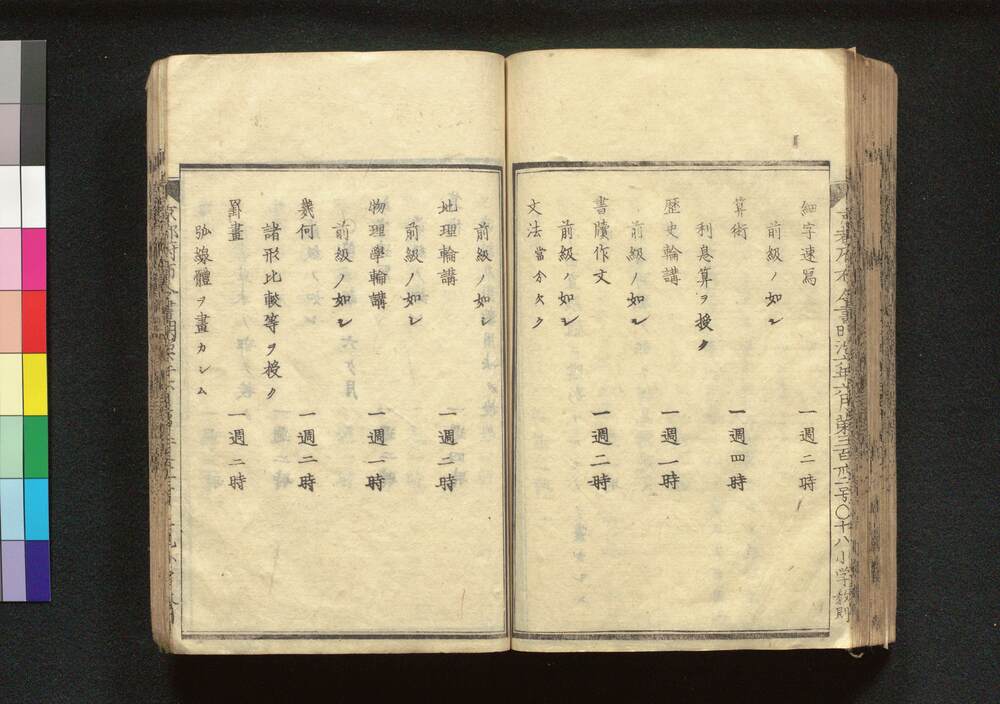 細字速寫 一週二時
前級ノ如シ
算術 一週四時
利息算ヲ授ク
歴史輪講 一週一時
前級ノ如シ
書牘作文 一週二時
前級ノ如シ
文法 當分欠ク
前級ノ如シ
地理輪講 一週二時
前級ノ如シ
物理學輪講 一週一時
前級ノ如シ
幾何 一週二時
諸形比較等ヲ授ク
罫畫 一週二時
弧線體ヲ畫カシム
第三百四二号〇十八小学教則